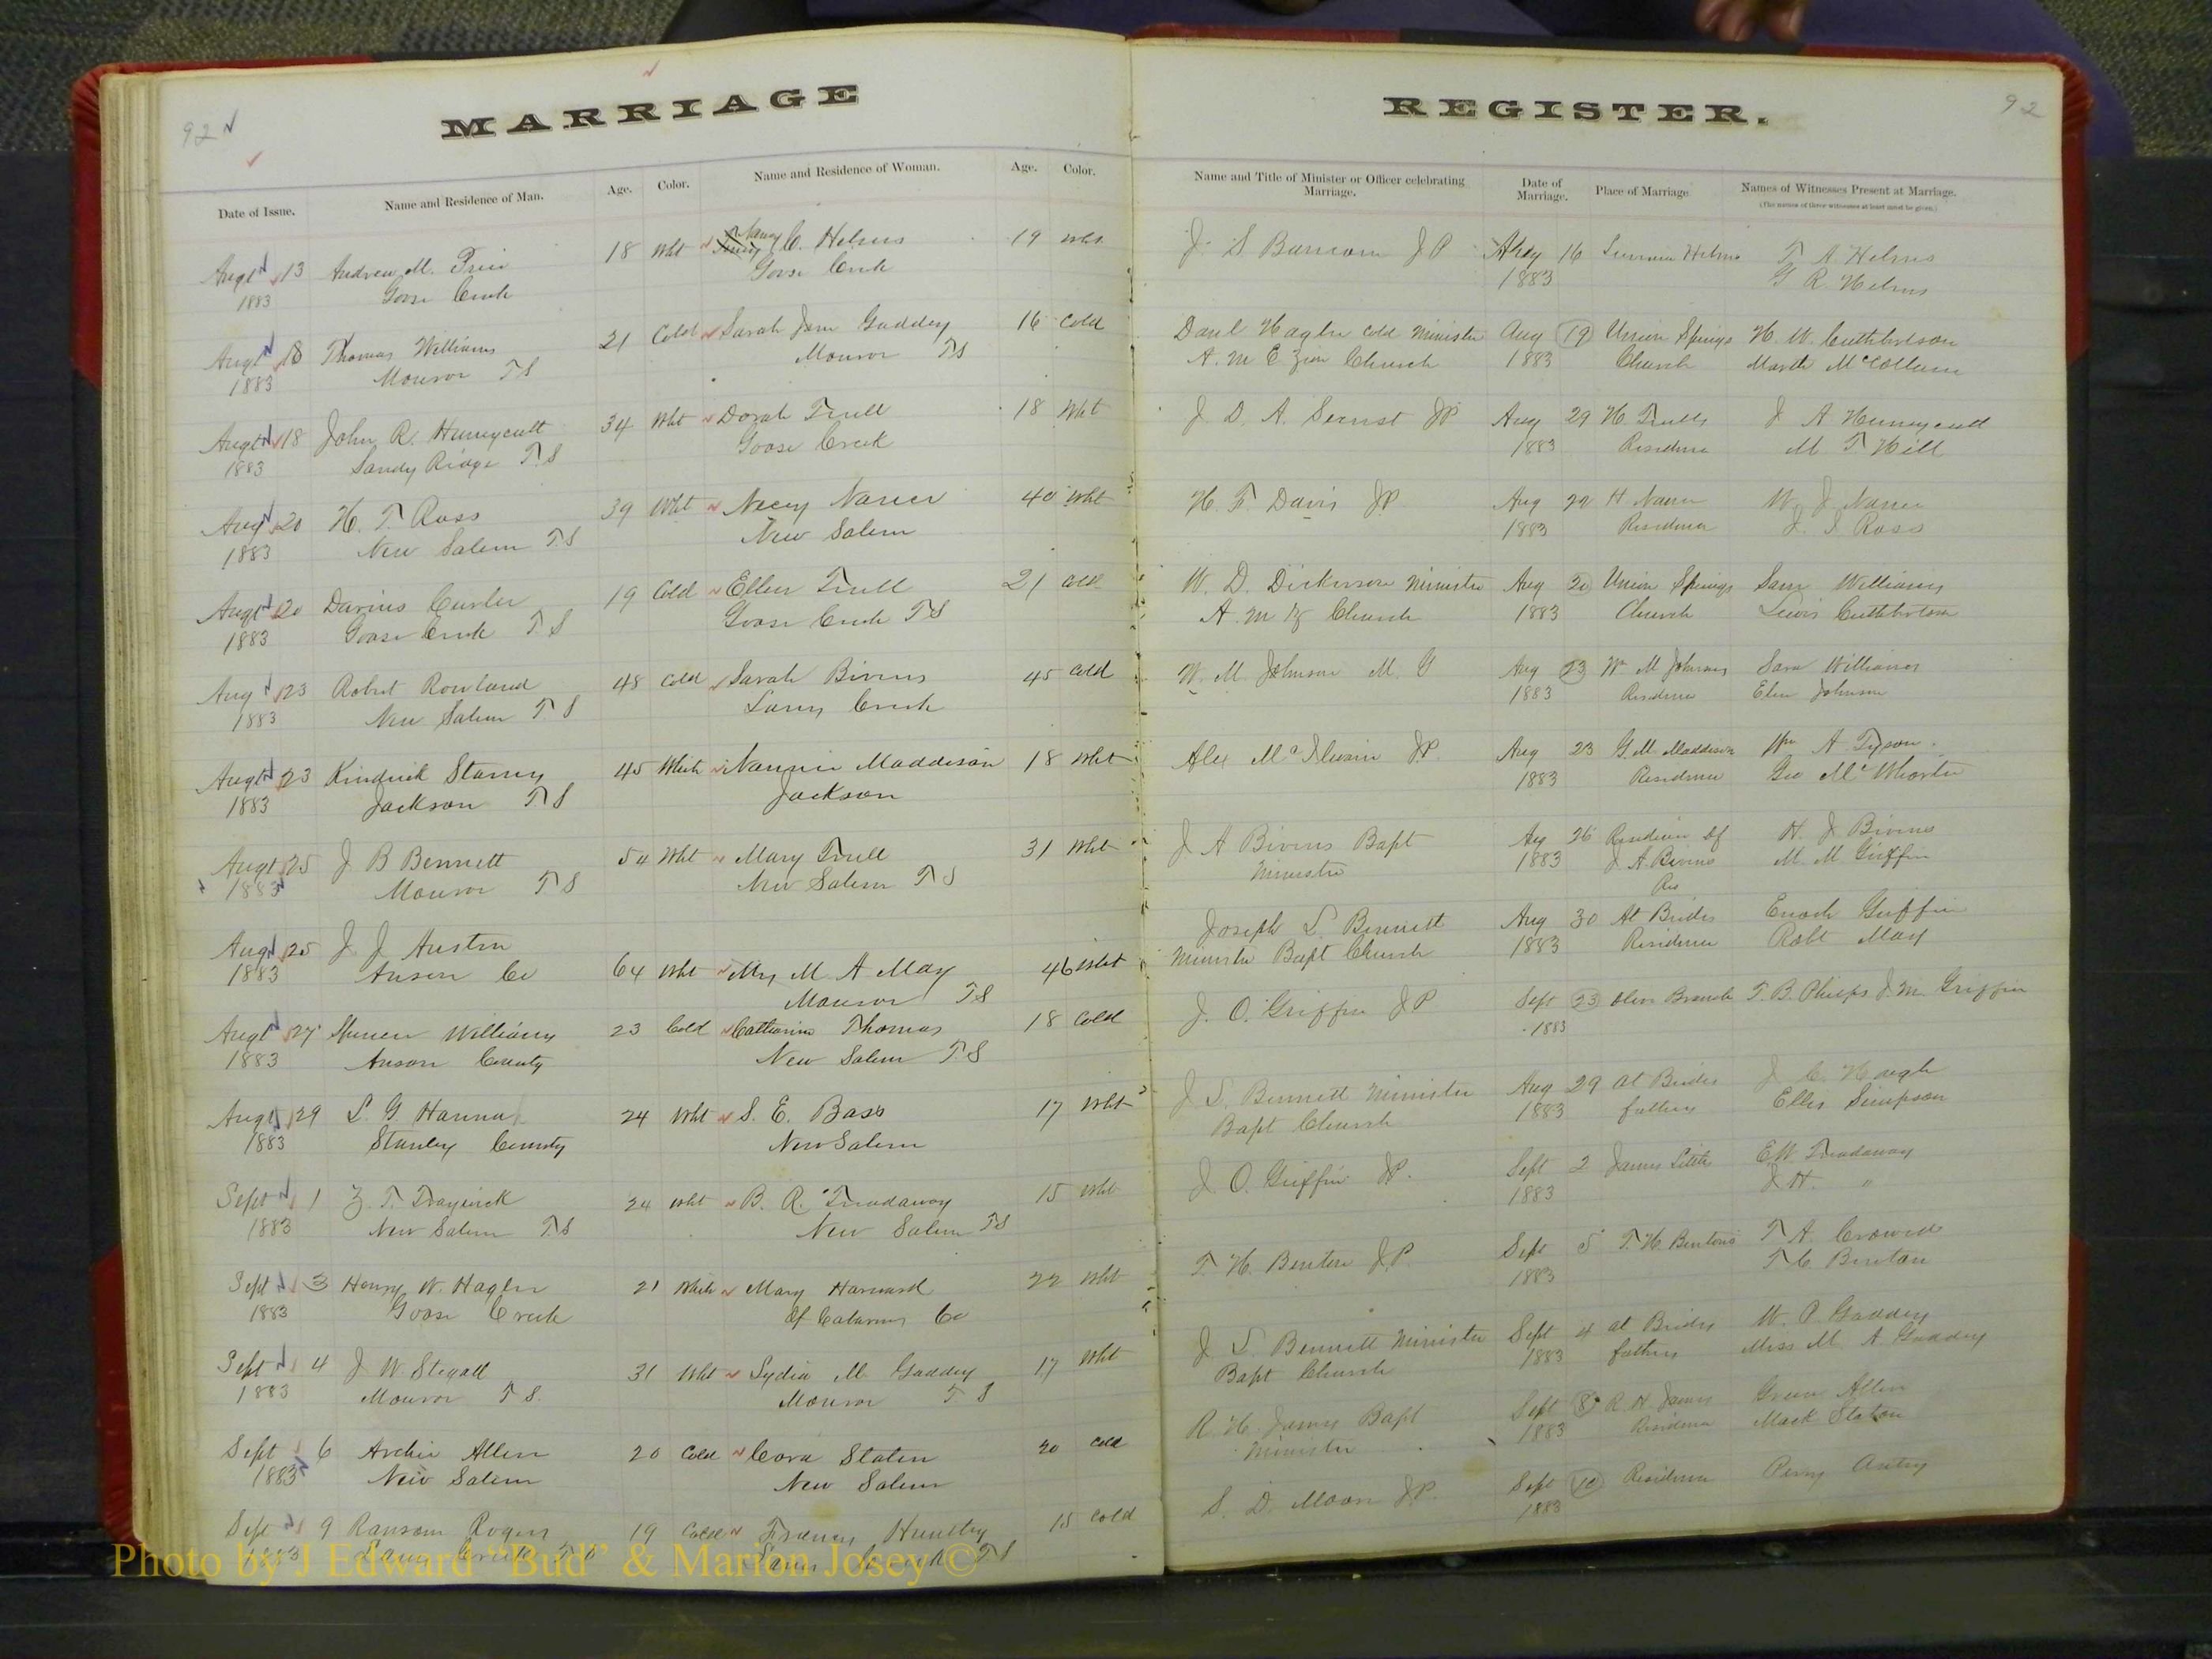 92
MARRIAGE
Date of Issue. Name and Residence of Man. Age. Color. Name and Residence of Woman. Age. Color.
Augt 13 Andrew M. 18 Wht Nancy C. Helms 19 Wht
1883 Goose Creek Goose Creek
Augt 18 Thomas Williams 21 Cold Sarah Jane Gaddey 16 Cold
1883 Monroe TS Monroe TS
Augt 18 John R. Huneycutt 34 Wht Dorah Trull 18 Wht
1883 Sandy Ridge T.S Goose Creek
Aug 20 H. T. Ross 39 Wht 40 Wht
1883 New Salem T.S New Salem
Augt 20 Darius 19 Cold Ellen Trull 21 Cold
1883 Goose Creek T.S Goose Creek TS
Aug 23 Robert Rowland 48 Cold Sarah Bivens 45 Cold
1883 New Salem T S Lanes Creek
Augt 23 Starnes 45 White Nannie Maddison 18 Wht
1883 Jackson T S Jackson
Augt 25 J B Bennett 54 Wht Mary Trull 31 Wht
1883 Monroe T S New Salem T S
Augt 25 J J Austin
1883 Anson Co 64 Wht Mrs M A May 46 Wht
Monroe TS
Augt 27 Williams 23 Cold Catharine Thomas 18 Cold
1883 Anson County New Salem T.S
Augt 29 L. G Hanna 24 Wht S. E. Bass 17 Wht
1883 Stanley County New Salem
Sept 1 Z. T. 24 Wht B. R. Treadaway 15 Wht
1883 New Salem T.S New Salem TS
Sept 3 Henry W. Hagler 21 White Mary 22 Wht
1883 Goose Creek Of Cabarrus Co
Sept 4 J W Stegall 31 Wht Lydia M Gaddey 17 Wht
1883 Monroe T S. Monroe T. S
Sept 6 Archie Allen 20 Cold Cora Staten 20 Cold
1883 New Salem New Salem
Sept 9 Ransom Rogers 19 Cold Huntley 18 Cold
1883 Lanes Creek T S Lanes Creek TS
92
REGISTER.
Name and Title of Minister or Officer celebrating Marriage. Date of Marriage. Place of Marriage Names of Witnesses Present at Marriage.
(The names of three witnesses at least must be given.)
J. S J P Aug 16 Helms T. A. Helms
1883 G R. Helms
Danl Hagler cold Minister Aug 19 Union Springs H. W. Cuthbertson
A. M E Zion Church 1883 Church McCollum
J. D. A. JP Aug 29 H Trulls J A Huneycutt
1883 Residence M. T Hill
H. F. Davis JP. Aug 22 H W. J.
1883 Residence J. S Ross
W. D. Dickerson Minister Aug 20 Union Springs Sam Williams
A. M Z Church 1883 Church Lewis Cuthbertson
W. M. Johnson M. G Aug 23 Wm M Johnsons Williams
1883 Residence Johnson
Alex McIlwain J.P. Aug 23 G.M. Maddison Wm A Tyson.
1883 Residence Geo McWhorter
J A Bivens Bapt Ag 26 Residence of H. J. Bivens
Minister 1883 J. A. Bivens M. M Griffin
Res
Joseph L. Bennett Aug 30 At Brides Enoch Griffin
Minister Bapt Church 1883 Residence Robt May
J. O. Griffin J P Sept 23 Olive Branch T. B. Phifer J. M. Griffin
1883
J L. Bennett Minister Aug 29 at Brides J. C.
Bapt Church 1883 fathers Ellis Simpson
J. O. Griffin J.P. Sept 2 James E.W. Treadaway
1883 J. H. "
T. H. Benton J.P. Sept 5 T. H. Bentons T. A.
1883 T C Benton
J. L. Bennett Minister Sept 4 at Brides W. P Gaddey
Bapt Church 1883 fathers Miss M. A Gaddey
R. H. James Bapt Sept 8 R. H. James Green Allen
Minister 1883 Residence Mack Staton
S. D. Moore J.P. Sept 10 Residence Perry
1883
Photo by J Edward "Bud" & Marion Josey ©